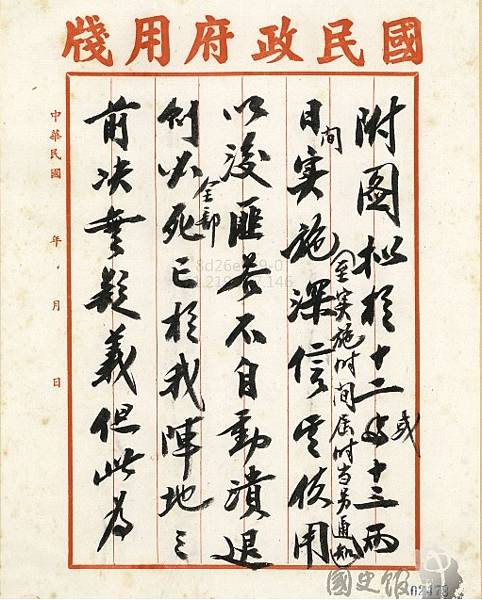 國民政府用牋
附图拟於十二或十三兩
日間實施深信其使用
至实施时间届时当另通知
以後匪若不自動潰退
則必全部死亡於我陣地之
前决無疑義但此為
中華民國 年 月 日
國史館